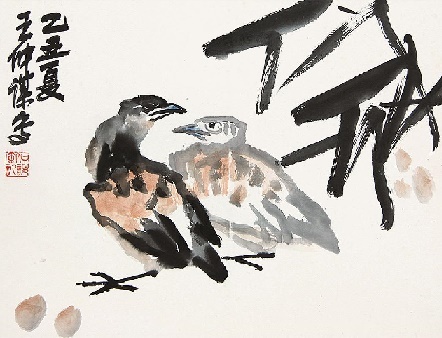 乙丑夏
王仲谋